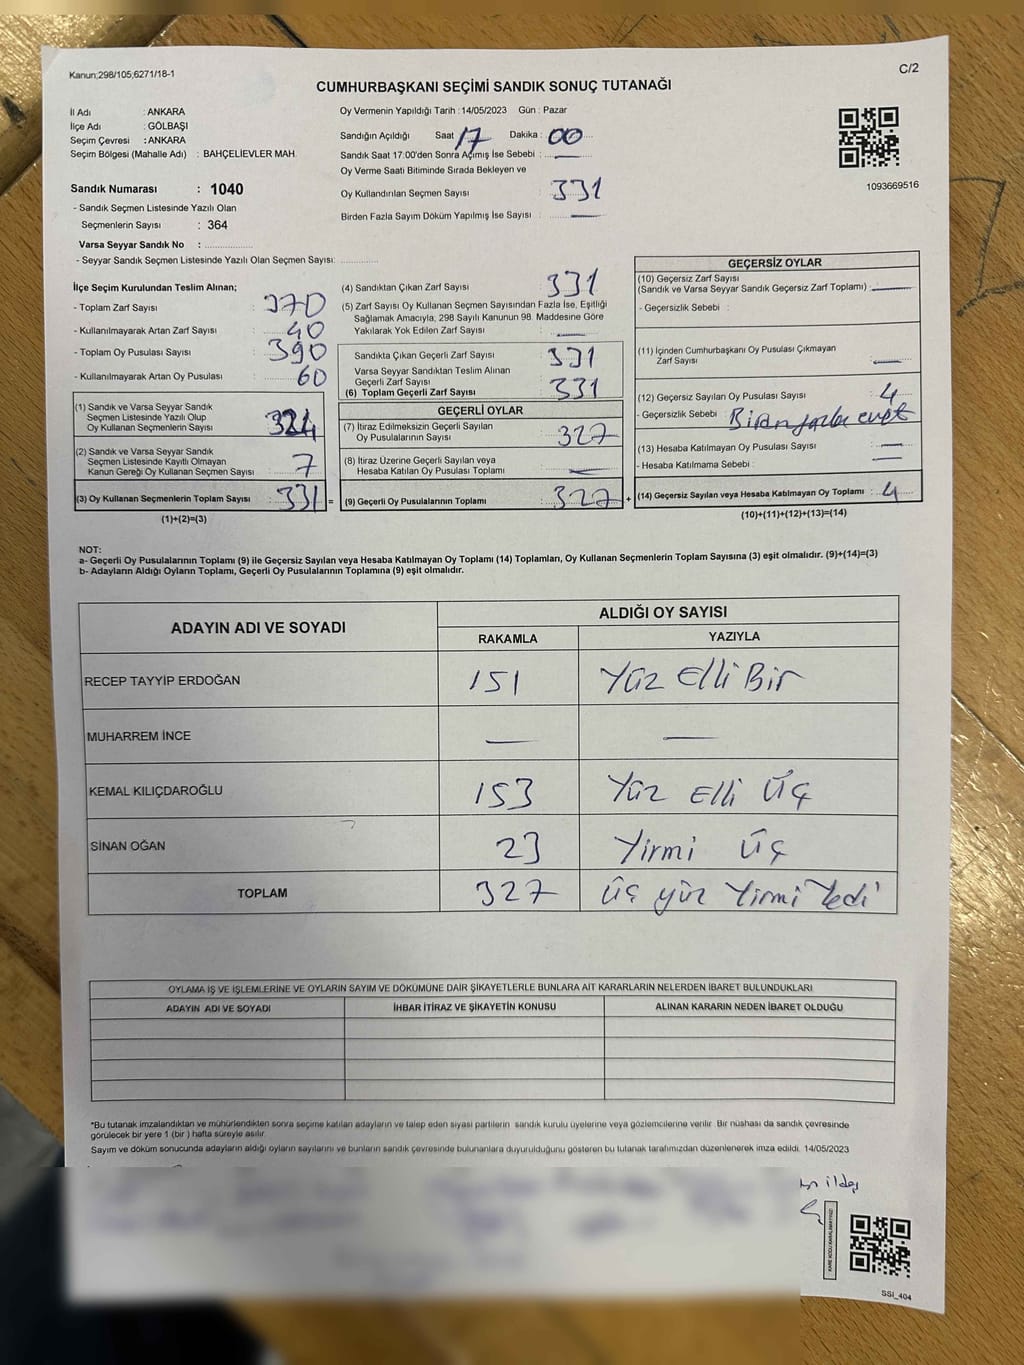 Kanun;298/105;6271/18-1
C/2
CUMHURBAŞKANI SEÇİMİ SANDIK SONUÇ TUTANAĞI
İl Adı : ANKARA
İlçe Adı : GÖLBAŞI
Seçim Çevresi : ANKARA
Seçim Bölgesi (Mahalle Adı) : BAHÇELİEVLER MAH.
Sandık Numarası : 1040
- Sandık Seçmen Listesinde Yazılı Olan
Seçmenlerin Sayısı : 364
Varsa Seyyar Sandık No : ..............
- Seyyar Sandık Seçmen Listesinde Yazılı Olan Seçmen Sayısı: ..............
Oy Vermenin Yapıldığı Tarih : 14/05/2023 Gün : Pazar
Sandığın Açıldığı Saat 17 Dakika : 00
Sandık Saat 17:00'den Sonra Açımış İse Sebebi : —
Oy Verme Saati Bitiminde Sırada Bekleyen ve
Oy Kullandırılan Seçmen Sayısı 331
Birden Fazla Sayım Döküm Yapılmış İse Sayısı : —
1093669516
İlçe Seçim Kurulundan Teslim Alınan;
- Toplam Zarf Sayısı : 370
- Kullanılmayarak Artan Zarf Sayısı : 40
- Toplam Oy Pusulası Sayısı : 390
- Kullanılmayarak Artan Oy Pusulası : 60
(1) Sandık ve Varsa Seyyar Sandık
Seçmen Listesinde Yazılı Olup
Oy Kullanan Seçmenlerin Sayısı : 324
(2) Sandık ve Varsa Seyyar Sandık
Seçmen Listesinde Kayıtlı Olmayan
Kanun Gereği Oy Kullanan Seçmen Sayısı : 7
(3) Oy Kullanan Seçmenlerin Toplam Sayısı : 331 =
(1)+(2)=(3)
(4) Sandıktan Çıkan Zarf Sayısı : 331
(5) Zarf Sayısı Oy Kullanan Seçmen Sayısından Fazla İse, Eşitliği
Sağlamak Amacıyla, 298 Sayılı Kanunun 98. Maddesine Göre
Yakılarak Yok Edilen Zarf Sayısı : —
Sandıkta Çıkan Geçerli Zarf Sayısı : 331
Varsa Seyyar Sandıktan Teslim Alınan
Geçerli Zarf Sayısı
(6) Toplam Geçerli Zarf Sayısı : 331
GEÇERLİ OYLAR
(7) İtiraz Edilmeksizin Geçerli Sayılan
Oy Pusulalarının Sayısı : 327
(8) İtiraz Üzerine Geçerli Sayılan veya
Hesaba Katılan Oy Pusulası Toplamı : —
(9) Geçerli Oy Pusulalarının Toplamı : 327 +
GEÇERSİZ OYLAR
(10) Geçersiz Zarf Sayısı
(Sandık ve Varsa Seyyar Sandık Geçersiz Zarf Toplamı) : —
- Geçersizlik Sebebi :
(11) İçinden Cumhurbaşkanı Oy Pusulası Çıkmayan
Zarf Sayısı : —
(12) Geçersiz Sayılan Oy Pusulası Sayısı : 4
- Geçersizlik Sebebi : Birden fazla evet
(13) Hesaba Katılmayan Oy Pusulası Sayısı : —
- Hesaba Katılmama Sebebi : —
(14) Geçersiz Sayılan veya Hesaba Katılmayan Oy Toplamı : 4
(10)+(11)+(12)+(13)=(14)
NOT:
a- Geçerli Oy Pusulalarının Toplamı (9) ile Geçersiz Sayılan veya Hesaba Katılmayan Oy Toplamı (14) Toplamları, Oy Kullanan Seçmenlerin Toplam Sayısına (3) eşit olmalıdır. (9)+(14)=(3)
b- Adayların Aldığı Oyların Toplamı, Geçerli Oy Pusulalarının Toplamına (9) eşit olmalıdır.
ADAYIN ADI VE SOYADI
ALDIĞI OY SAYISI
RAKAMLA YAZIYLA
RECEP TAYYİP ERDOĞAN 151 Yüz Elli Bir
MUHARREM İNCE — —
KEMAL KILIÇDAROĞLU 153 Yüz Elli Üç
SİNAN OĞAN 23 Yirmi Üç
TOPLAM 327 Üç yüz Yirmi Yedi
OYLAMA İŞ VE İŞLEMLERİNE VE OYLARIN SAYIM VE DÖKÜMÜNE DAİR ŞİKAYETLERLE BUNLARA AİT KARARLARIN NELERDEN İBARET BULUNDUKLARI
ADAYIN ADI VE SOYADI İHBAR İTİRAZ VE ŞİKAYETİN KONUSU ALINAN KARARIN NEDEN İBARET OLDUĞU
*Bu tutanak imzalandıktan ve mühürlendikten sonra seçime katılan adayların ve talep eden siyasi partilerin sandık kurulu üyelerine veya gözlemcilerine verilir. Bir nüshası da sandık çevresinde
görülecek bir yere 1 (bir ) hafta süreyle asılır.
Sayım ve döküm sonucunda adayların aldığı oyların sayılarını ve bunların sandık çevresinde bulunanlara duyurulduğunu gösteren bu tutanak tarafımızdan düzenlenerek imza edildi. 14/05/2023
SSI_404